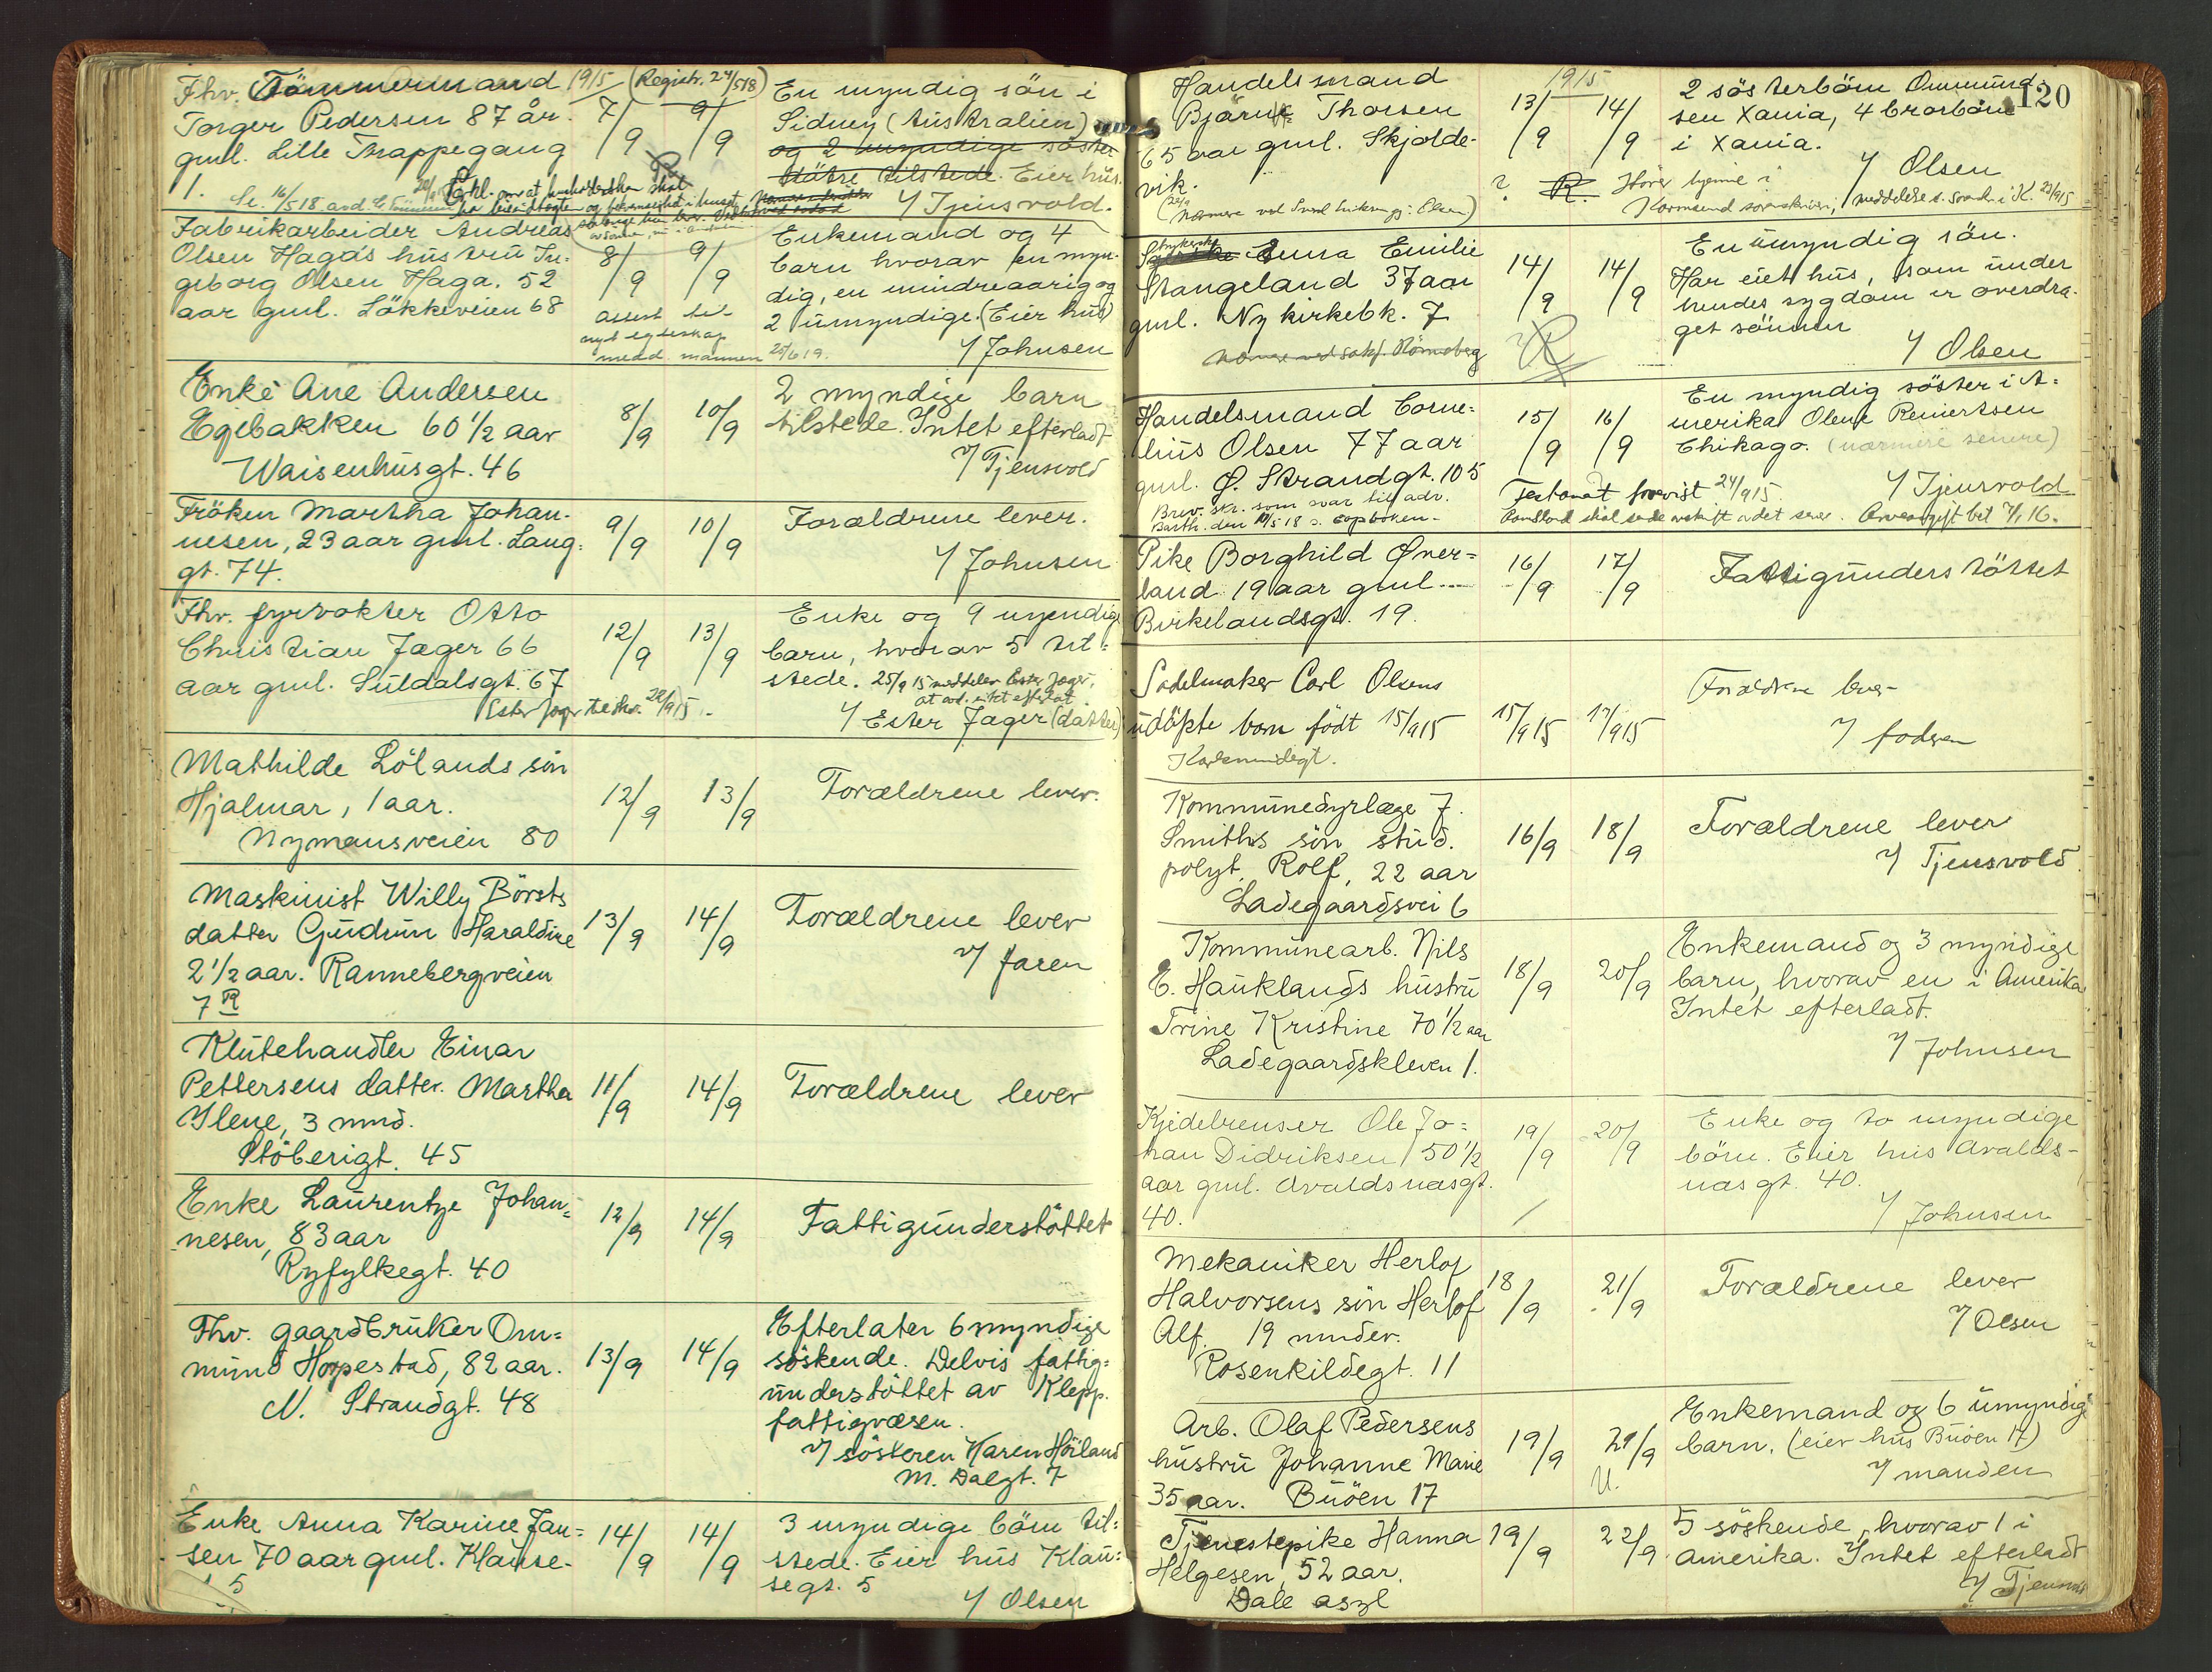 Fhv. Tömmermand
Torger Pedersen 87 år
gml. Lille Trappegang
1.
1915 (Registr. 24/5 18)
7/9 9/9
En myndig sön i
Sidney (Australien)
og 2 myndige söster
döttre tilstede. Eier hus.
v/ Tjensvold.
Fabrikarbeider Andreas
Olsen Hagas hustru In-
geborg Olsen Haga. 52
aar gml. Lökkeveien 68
8/9 9/9
attest til
nyt egteskap
medd. mannen 25/6 19.
Enkemand og 4
barn hvorav en myn-
dig, en mindreaarig og
2 umyndige. (Eier hus)
v/ Johnsen
Enke Ane Andersen
Egebakken 60 1/2 aar
Waisenhusgt. 46
8/9 10/9
2 myndige barn
tilstede. Intet efterladt
v/ Tjensvold
Fröken Martha Johan-
nesen, 23 aar gml. Lang-
gt. 74.
9/9 10/9
Forældrene lever.
v/ Johnsen
Fhv. fyrvokter Otto
Christian Jæger 66
aar gml. Suldalsgt. 67
12/9 13/9
Enke og 9 myndige
barn, hvorav 5 til-
stede. 25/9 15 meddeler Ester Jæger,
at avd. intet efterlot
v/ Ester Jæger (datter)
Mathilde Lölands sön
Hjalmar, 1 aar.
Nymansveien 80
12/9 13/9
Forældrene lever.
Maskinist Willy Börsts
datter Gudrun Haraldine
2 1/2 aar. Rannebergveien
7 R
13/9 14/9
Forældrene lever
v/ faren
Klutehandler Einar
Pettersens datter Martha
Ilene, 3 mnd.
Stöberigt. 45
11/9 14/9
Forældrene lever
Enke Laurentze Johan-
nesen, 83 aar
Ryfylkegt. 40
12/9 14/9
Fattigunderstöttet
Fhv. gaardbruker Om-
mund Horpestad, 82 aar.
N. Strandgt. 48
13/9 14/9
Efterlater 6 myndige
söskende. Delvis fattig-
understöttet av Klepp
fattigvæsen.
v/ sösteren Karen Höiland
M. Dalgt. 7
Enke Anna Karine Jan-
sen 70 aar gml. Klause-
5
14/9 14/9
3 myndige börn til-
stede. Eier hus Klau-
segt. 5
v/ Olsen
120
Handelsmand
Bjarne Thorsen
65 aar gml. Skjolde-
vik.
1915
13/9 14/9
2 sösterbörn Ommund-
sen Xania, 4 brorbörn
i Xania.
v/ Olsen
Anna Emilie
Stangeland 37 aar
gml. Ny kirkebk. 7
14/9 14/9
En umyndig sön.
Har eiet hus, som under
hendes sygdom er overdra-
get sönnen
v/ Olsen
Handelsmand Corne-
lius Olsen 77 aar
gml. Ø. Strandgt. 105
15/9 16/9
En myndig söster i A-
merika Olene Reinertsen
Chikago. (nærmere senere)
v/ Tjensvold
Testament forevist 24/9 15.
Pike Borghild Øver-
land 19 aar gml.
Birkelandsgt. 19.
16/9 17/9
Fattigunderstöttet
Sadelmaker Carl Olsens
udöpte barn födt 15/9 15
15/9 15 17/9 15
Forældrene lever
v/ faderen
Kommunedyrlæge J.
Smiths sön stud.
polyt. Rolf, 22 aar
Ladegaardsvei 6
16/9 18/9
Forældrene lever
v/ Tjensvold
Kommunearb. Nils
E. Hauklands hustru
Trine Kristine 70 1/2 aar
Ladegaardskleven 1.
18/9 20/9
Enkemand og 3 myndige
barn, hvorav en i Amerika
Intet efterladt.
v/ Johnsen
Kjedelrenser Ole Jo-
han Didriksen 50 1/2
aar gml. Avaldsnæsgt.
40.
19/9 20/9
Enke og to myndige
börn. Eier hus Avalds-
næsgt. 40.
v/ Johnsen
Mekaniker Herlof
Halvorsens sön Herlof
Alf. 19 mnder.
Rosenkildegt. 11
18/9 21/9
Forældrene lever
v/ Olsen
Arb. Olaf Pedersens
hustru Johanne Marie
35 aar. Buöen 17
19/9 21/9
U.
Enkemand og 6 umyndige
barn. (eier hus Buöen 17)
v/ manden
Tjenestepike Hanna
Helgesen, 52 aar.
Dale asyl
19/9 22/9
5 söskende, hvorav 1 i
Amerika. Intet efterladt